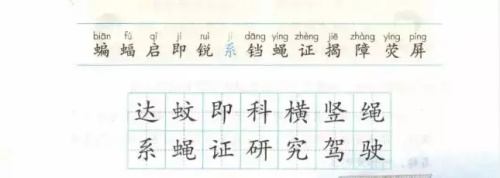 biān fú qǐ jí ruì jì dāng yíng zhèng jiē zhàng yíng píng
蝙 蝠 启 即 锐 系 铛 蝇 证 揭 障 荧 屏
达 蚊 即 科 横 竖 绳
系 蝇 证 研 究 驾 驶